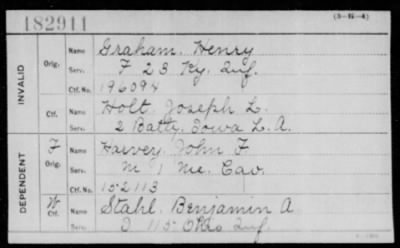 182911 (3-15-4)
INVALID
Orig. Name Graham, Henry
Serv. F 23 Ky. Inf.
Ctf. No. 196094
Ctf. Name Holt, Joseph L.
Serv. 2 Batty, Iowa L. A.
DEPENDENT
F Orig. Name Harvey, John F
Serv. M 1 Me. Cav.
Ctf. No. 152113
W Ctf. Name Stahl, Benjamin A
Serv. 115 Ohio Inf.